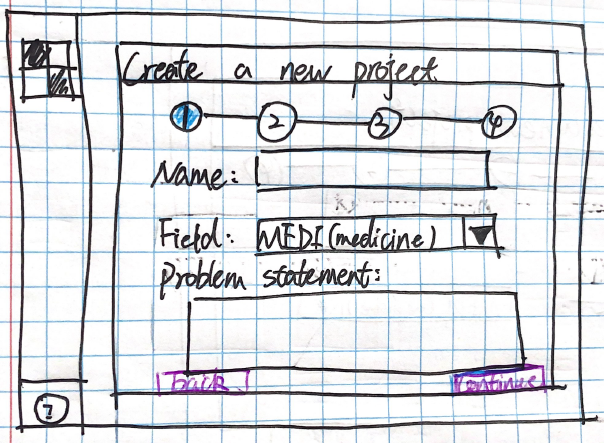 Create a new project
1 2 3 4
Name:
Field: MEDI (medicine)
Problem statement:
back continue
?